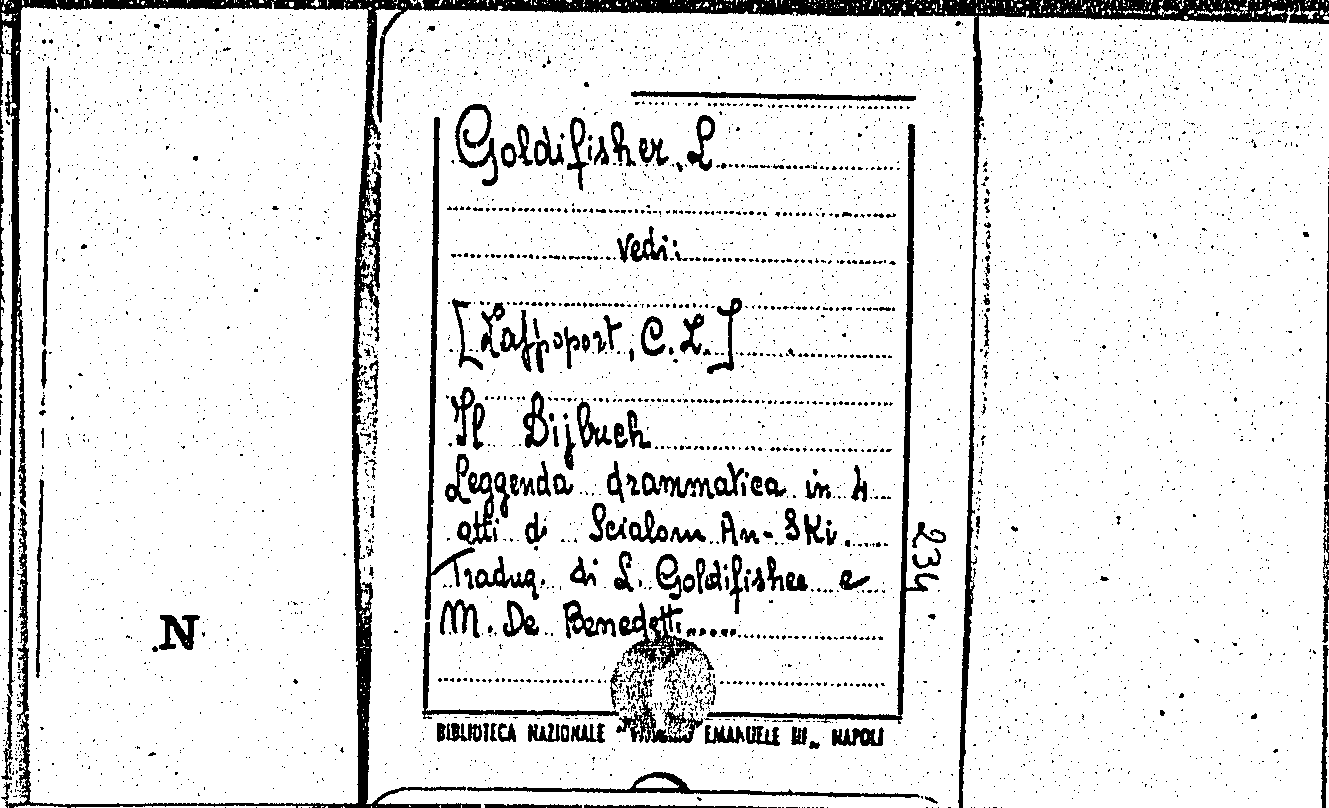 Goldifisher, L
vedi:
[Laffsport, C. L.]
Il Bijbuch
Leggenda drammatica in 4
atti di Scialom An-Ski.
Traduz. di L. Goldifisher e
M. De Benedetti.....
234
.N
BIBLIOTECA NAZIONALE " EMANUELE III„ NAPOLI